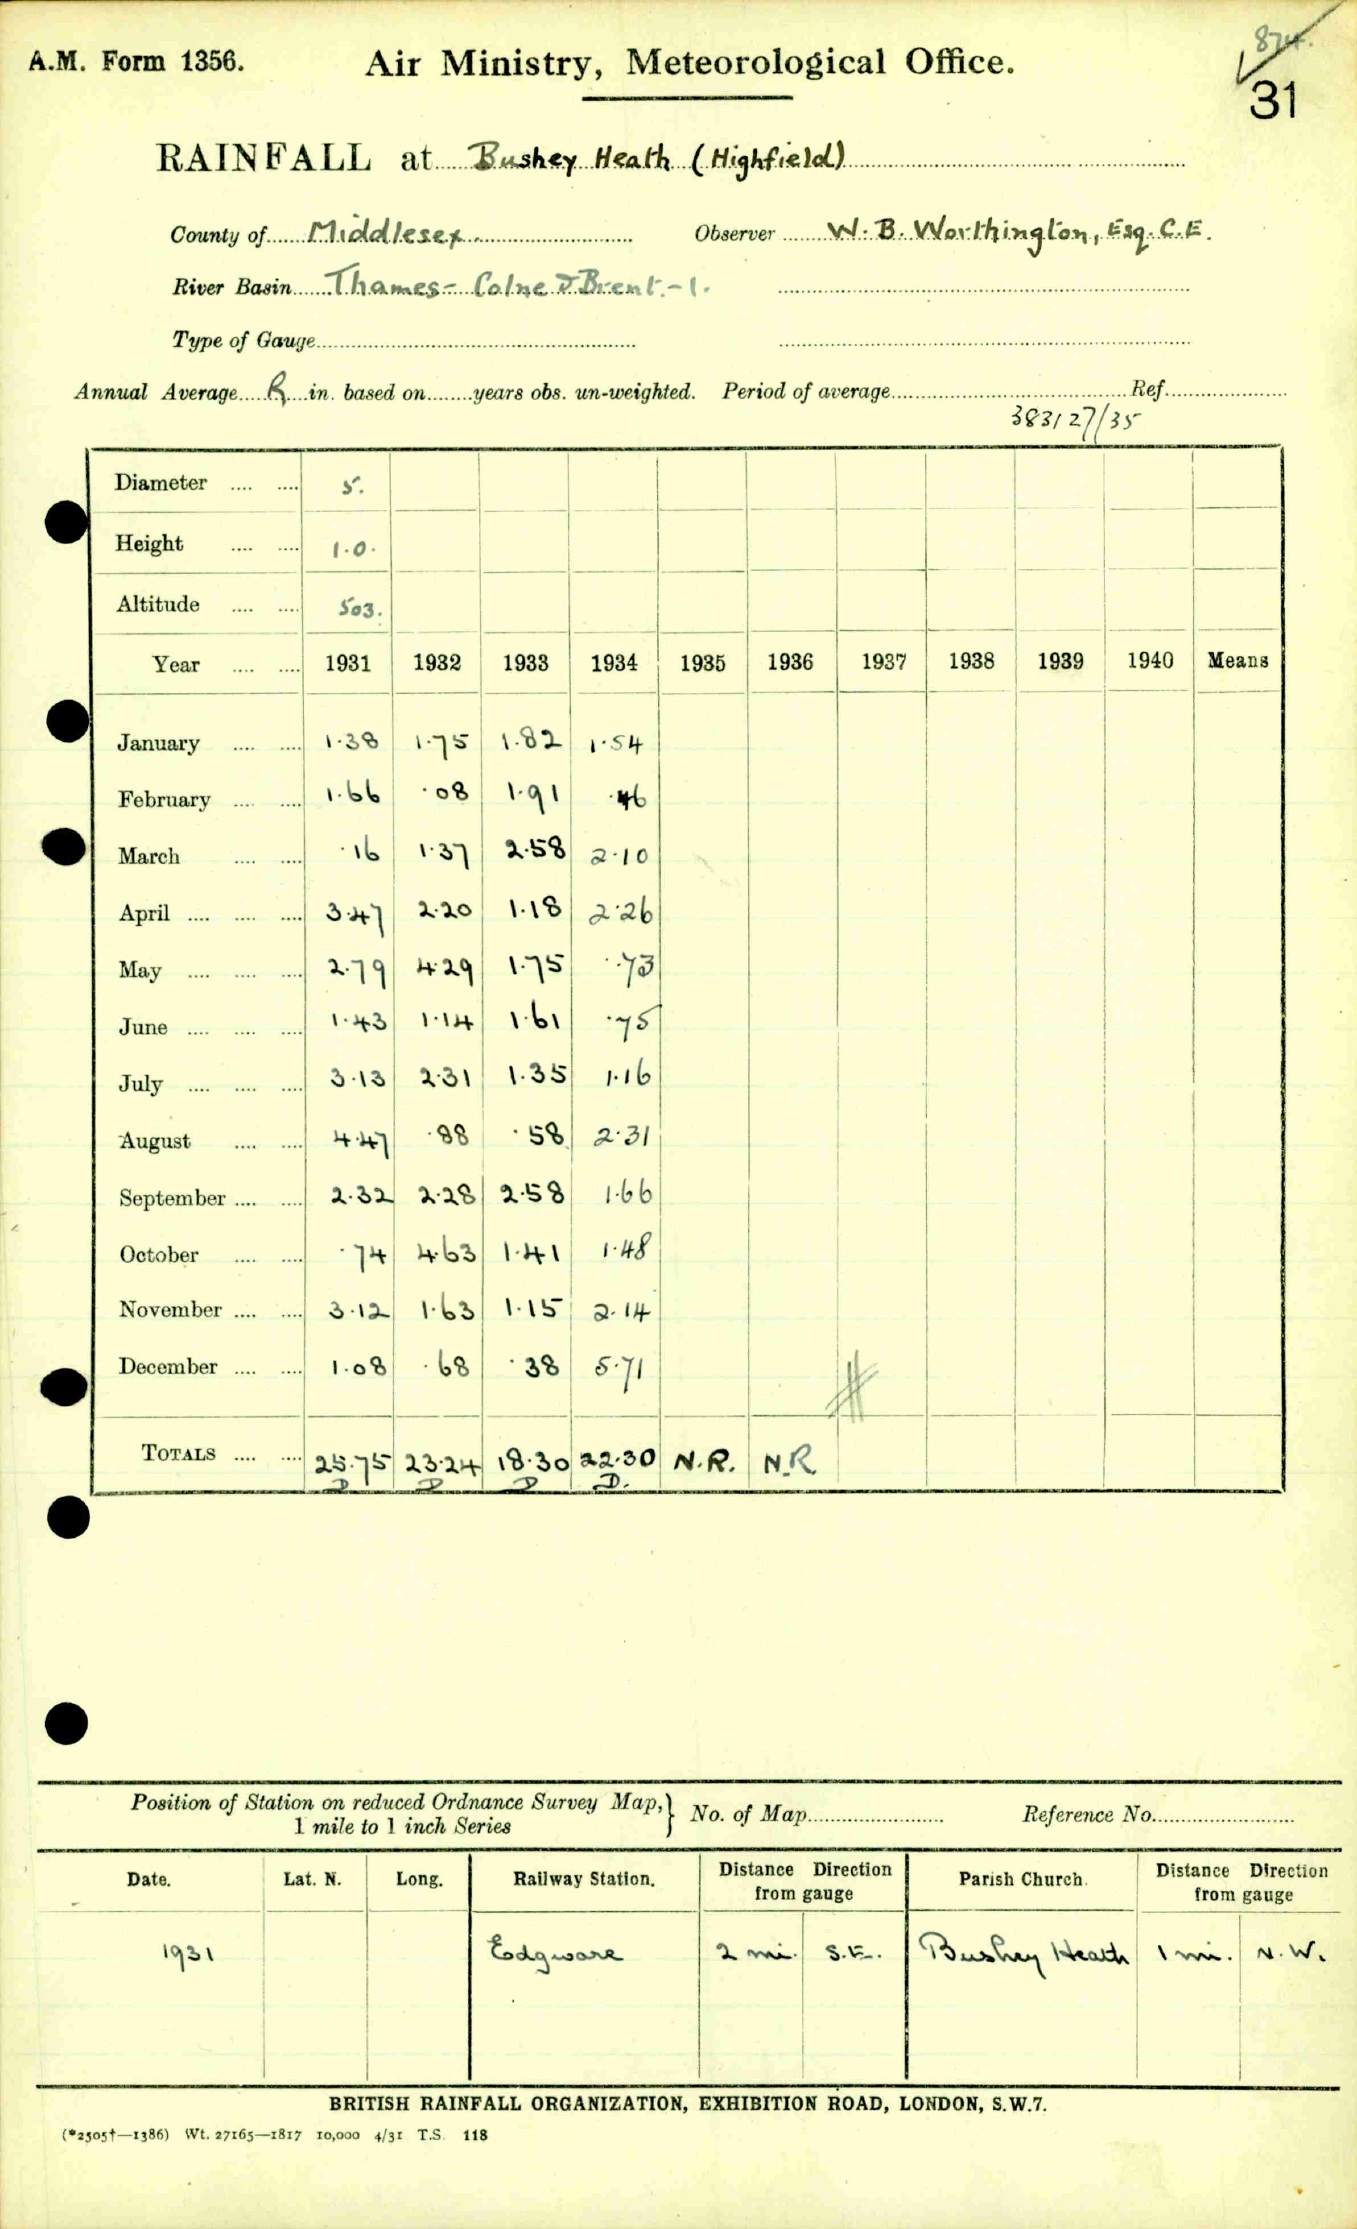 874.
A.M. Form 1356.
Air Ministry, Meteorological Office.
31
RAINFALL at Bushey Heath (Highfield)
County of Middlesex. Observer W. B. Worthington, Esq. C.E.
River Basin Thames - Colne & Brent. - 1.
Type of Gauge
Annual Average R in. based on years obs. un-weighted. Period of average Ref.
383127/35
Diameter 5.
Height 1.0.
Altitude 503.
Year 1931 1932 1933 1934 1935 1936 1937 1938 1939 1940 Means
January 1.38 1.75 1.82 1.54
February 1.66 .08 1.91 .46
March .16 1.37 2.58 2.10
April 3.47 2.20 1.18 2.26
May 2.79 4.29 1.75 .73
June 1.43 1.14 1.61 .75
July 3.13 2.31 1.35 1.16
August 4.47 .88 .58 2.31
September 2.32 2.28 2.58 1.66
October .74 4.63 1.41 1.48
November 3.12 1.63 1.15 2.14
December 1.08 .68 .38 5.71
TOTALS 25.75 23.24 18.30 22.30 N.R. N.R.
D D D D.
Position of Station on reduced Ordnance Survey Map, } No. of Map Reference No.
1 mile to 1 inch Series
Date. Lat. N. Long. Railway Station. Distance Direction from gauge Parish Church. Distance Direction from gauge
1931 Edgware 2 mi. S.E. Bushey Heath 1 mi. N.W.
BRITISH RAINFALL ORGANIZATION, EXHIBITION ROAD, LONDON, S.W.7.
(*2505†—1386) Wt. 27165—1817 10,000 4/31 T.S. 118